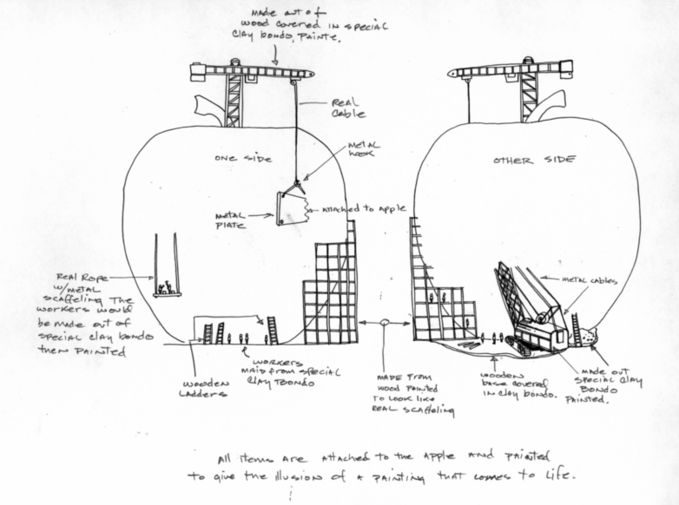 MADE OUT OF
WOOD COVERED IN SPECIAL
CLAY BONDO, PAINTE.
REAL
CABLE
METAL
HOOK
ONE SIDE
OTHER SIDE
ATTACHED TO APPLE
METAL
PLATE
REAL ROPE
W/METAL
SCAFFELING THE
WORKERS WOULD
BE MADE OUT OF
SPECIAL CLAY BONDO
THEN PAINTED
METAL CABLES
WOODEN
LADDERS
WORKERS
MAID FROM SPECIAL
CLAY BONDO
MADE FROM
WOOD PAINTED
TO LOOK LIKE
REAL SCAFFELING
WOODEN
BASE COVERED
IN CLAY BONDO.
MADE OUT
SPECIAL CLAY
BONDO
PAINTED.
All items are attached to the apple and painted
to give the illusion of a painting that comes to life.